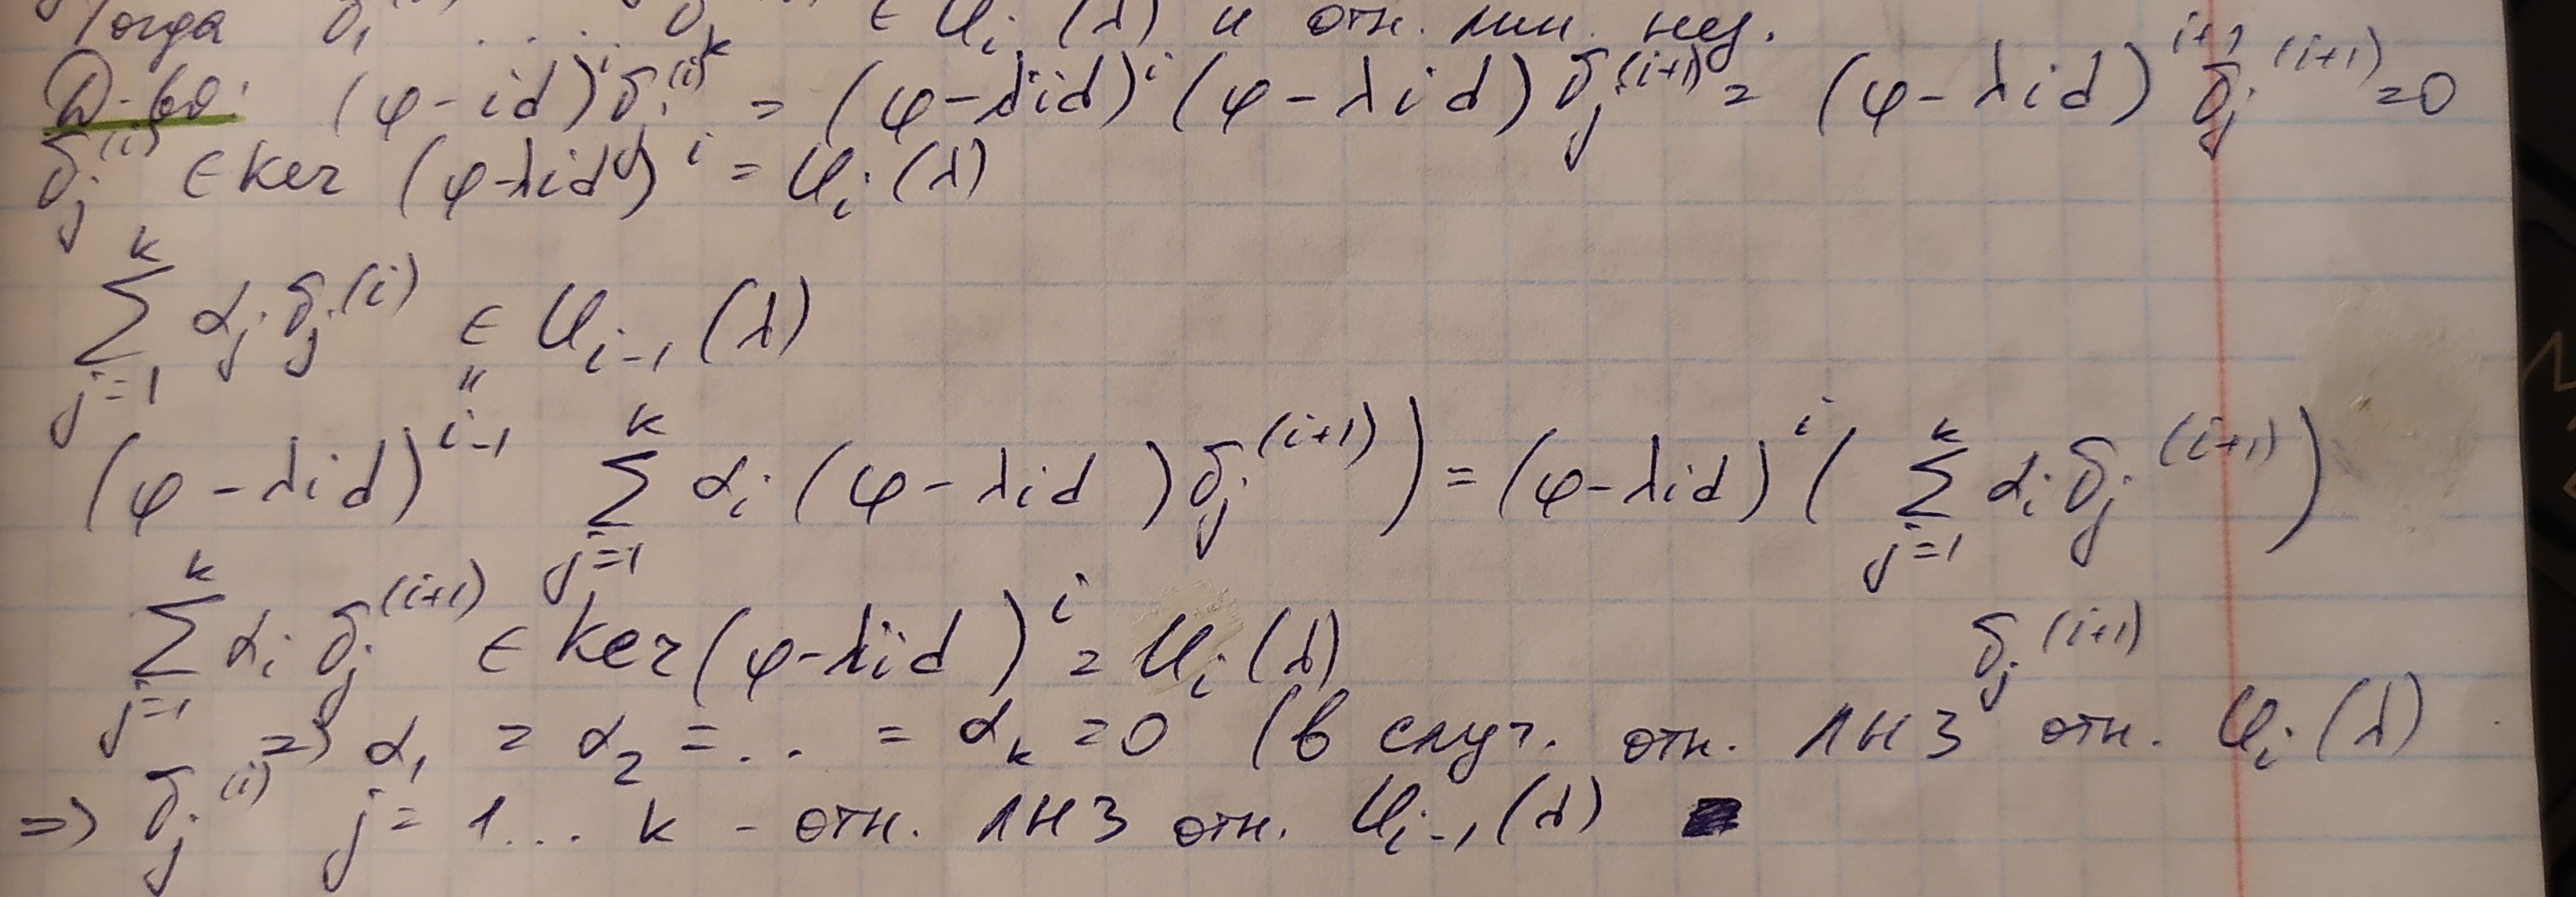 Тогда δ₁ . . . . δₖ ∈ U_i (λ) и отн. лин. нез.
Д-во: (φ - id)^i δ_j^(i) = (φ - λid)^i (φ - λid) δ_j^(i+1) = (φ - λid)^(i+1) δ_j^(i+1) = 0
δ_j^(i) ∈ ker (φ-λid)^i = U_i (λ)
∑_{j=1}^{k} α_j δ_j^(i) ∈ U_{i-1} (λ)
"
(φ - λid)^{i-1} ∑_{j=1}^{k} α_i (φ - λid ) δ_j^(i+1) ) = (φ - λid)^i ( ∑_{j=1}^{k} α_i δ_j^(i+1) )
∑_{j=1}^{k} α_i δ_j^(i+1) ∈ ker (φ-λid)^i = U_i (λ) δ_j^(i+1)
=> α₁ = α₂ = .. = αₖ = 0 (в случ. отн. ЛНЗ отн. U_i (λ)
=> δ_j^(i) j = 1... k - отн. ЛНЗ отн. U_{i-1} (λ)